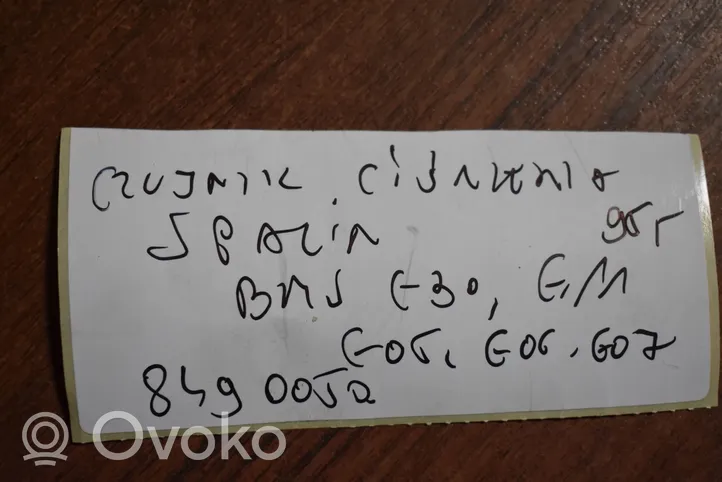 CZUJNIK CIŚNIENIA
SPALIN 95,-
BMW G30, G11
G05, G06, G07
8490050
Ovoko